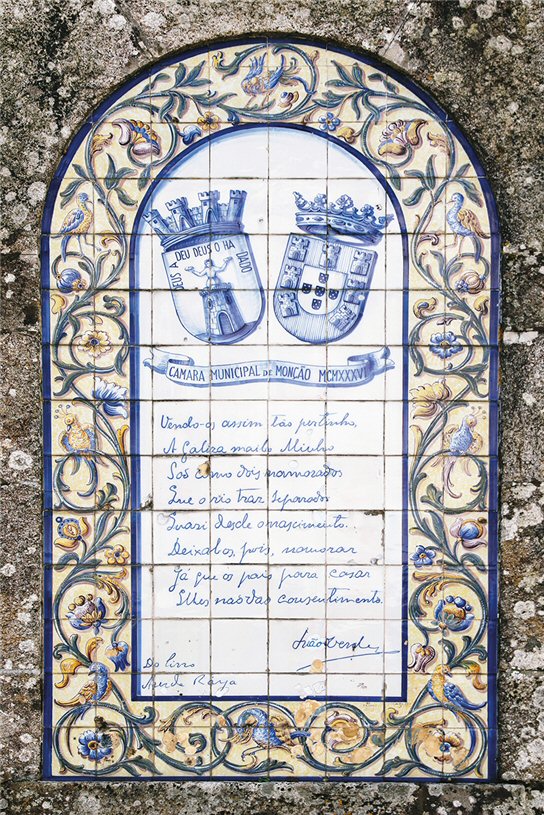 DEUS A DEU DEUS O HA DADO
CAMARA MUNICIPAL DE MONÇÃO MCMXXXVI
Vendo-os assim tão pertinho,
A Galiza mailo Minho
São como dois namorados
Que o rio traz separados
Quasi desde o nascimento..
Deixal-os, pois, namorar
Já que os pais para casar
Lhes não dão consentimento.
João Verde
Do livro
Ares da Raya